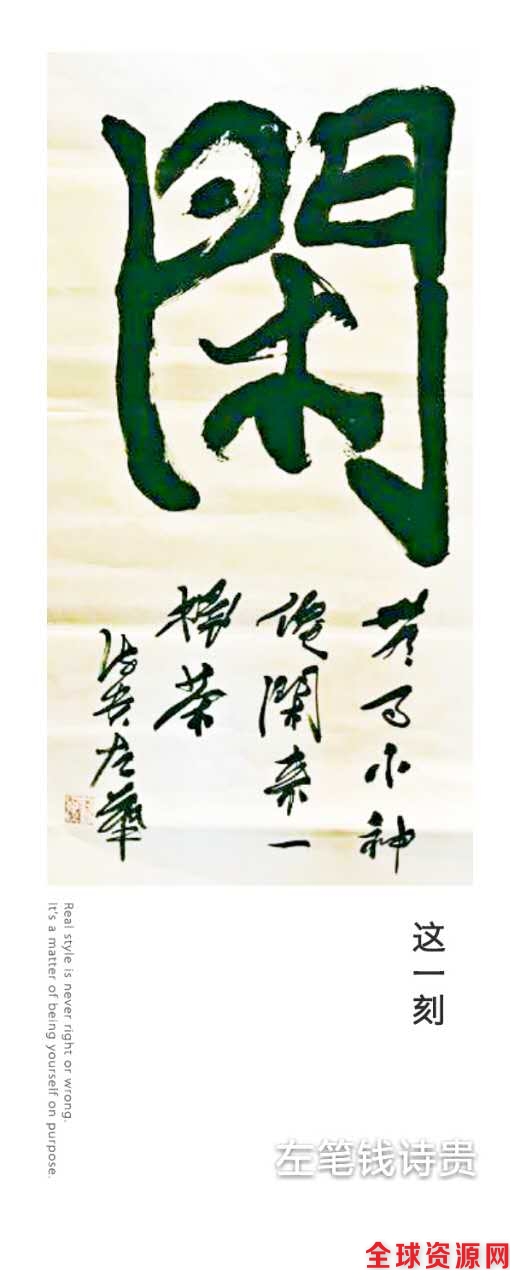 閑
小神
僊閑來一
茶
诗贵左筆
这一刻
Real style is never right or wrong.
It's a matter of being yourself on purpose.
左笔钱诗贵
全球资源网